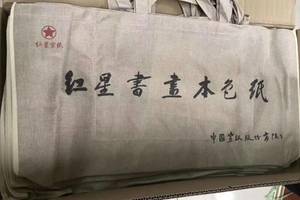 红星宣纸
红星書畫本色紙
中国宣纸股份有限公司